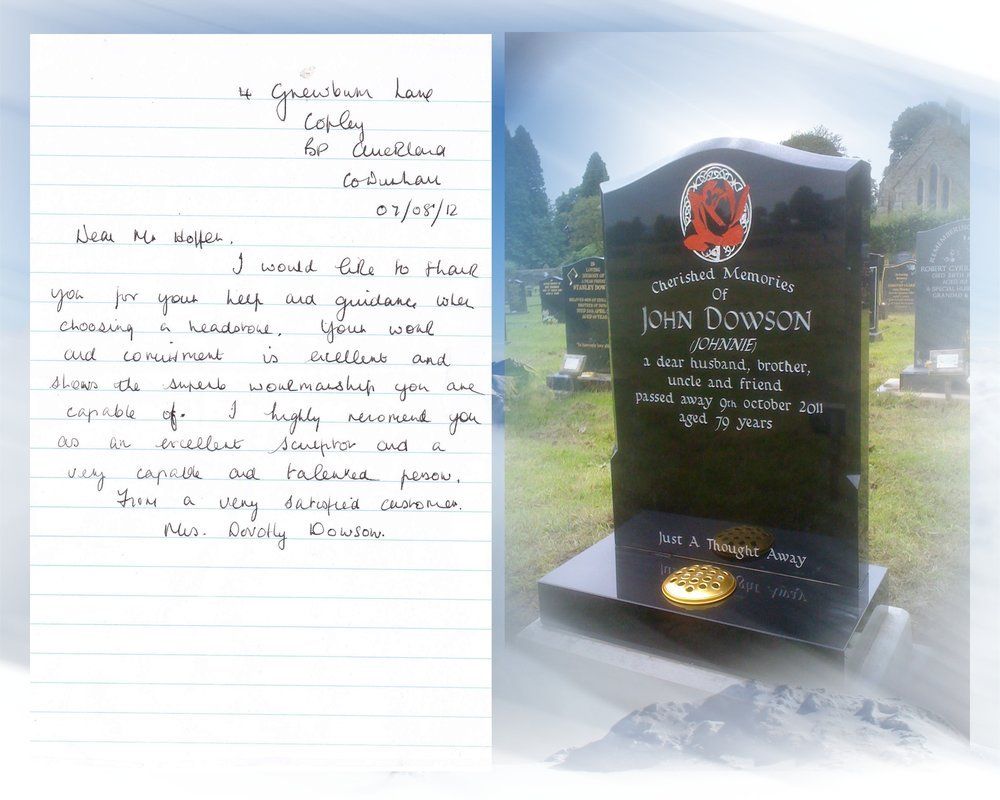 4 Grewburn Lane
Copley
BP Auckland
Co Durham
07/08/12
Dear Mr
I would like to thank
you for your help and guidance when
choosing a headstone. Your work
and comitment is excellent and
shows the superb workmanship you are
capable of. I highly recomend you
as an excellent sculptor and a
very capable and talented person.
From a very satisfied customer.
Mrs. Dorothy Dowson.
Cherished Memories
Of
JOHN DOWSON
(JOHNNIE)
a dear husband, brother,
uncle and friend
passed away 9th october 2011
aged 79 years
Just A Thought Away
IN
LOVING MEMORY OF
A DEAR
STANLEY DOW
REMEMBERING
ROBERT CYRIL